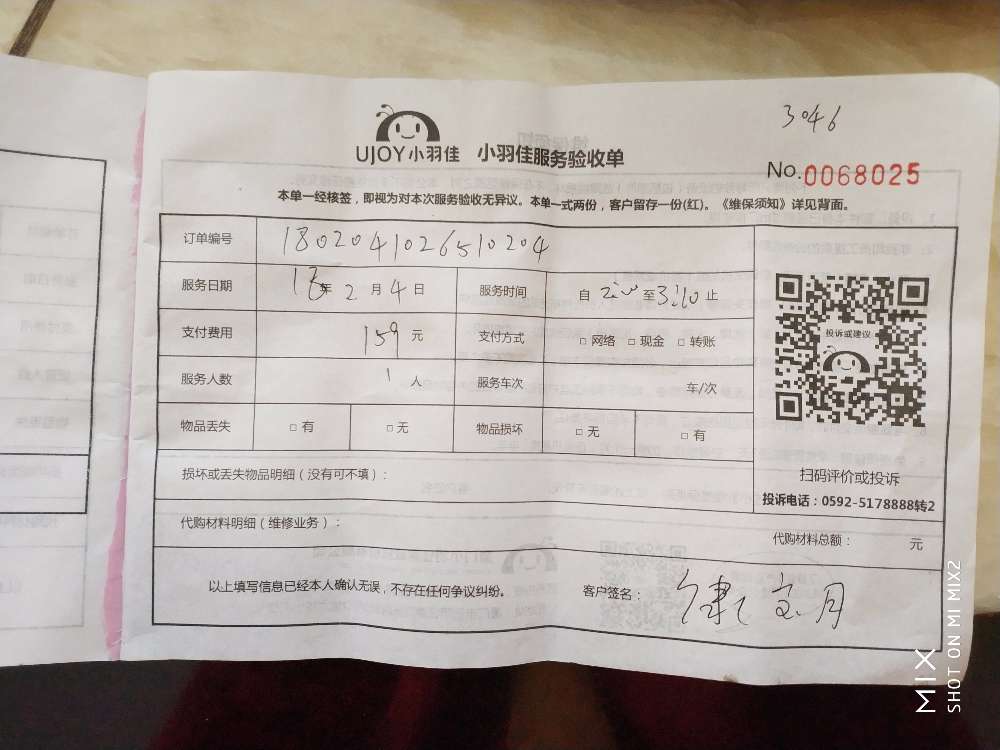 3046
UJOY小羽佳 小羽佳服务验收单
No.0068025
本单一经核签，即视为对本次服务验收无异议。本单一式两份，客户留存一份(红)。《维保须知》详见背面。
订单编号 1802041026510204
服务日期 18年2月4日 服务时间 自 至3:10止
支付费用 159元 支付方式 □网络 □现金 □转账
服务人数 1人 服务车次 车/次
物品丢失 □有 □无 物品损坏 □无 □有
投诉或建议
扫码评价或投诉
投诉电话：0592-5178888转2
损坏或丢失物品明细（没有可不填）：
代购材料明细（维修业务）： 代购材料总额： 元
以上填写信息已经本人确认无误，不存在任何争议纠纷。 客户签名： 宝月
MIX
SHOT ON MI MIX2